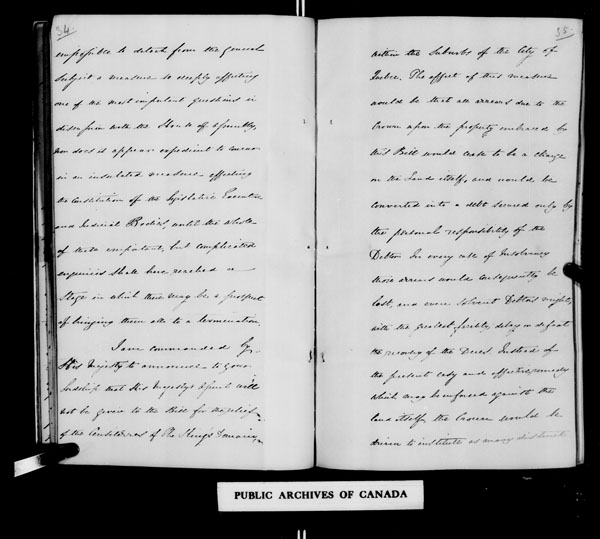 34.
impossible to detach from the general
subject a measure so deeply affecting
one of the most important questions in
discussion with the House of Assembly,
nor does it appear expedient to concur
in an insulated measure affecting
the constitution of the Legislative Executive
and Judicial Bodies, until the whole
of these important, but complicated
enquiries shall have reached a
Stage in which there may be a prospect
of bringing them all to a termination.
I am commanded by
His Majesty to announce to your
Lordship that His Majesty's assent will
not be given to the Bill for the relief
of the Censitaires of The King's Domain,
35.
within the Suburbs of the City of
Quebec. The effect of this measure
would be that all arrears due to the
Crown upon the property embraced by
this Bill would cease to be a charge
on the Land itself, and would be
converted into a debt secured only by
the personal responsibility of the
Debtor. In every case of Insolvency
those arrears would consequently be
lost, and even solvent Debtors might,
with the greatest facility delay or defeat
the recovery of the Dues. Instead of
the present easy and effective remedy
which may be enforced against the
land itself, the Crown would be
driven to institute as many distinct
PUBLIC ARCHIVES OF CANADA